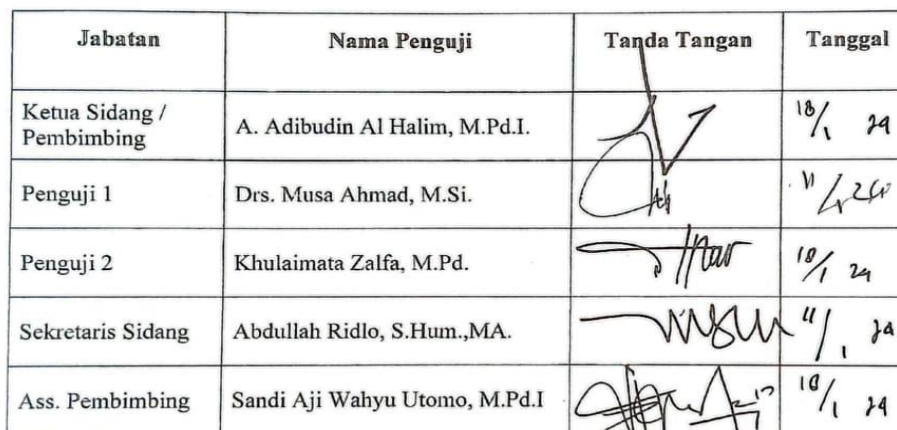 Jabatan Nama Penguji Tanda Tangan Tanggal
Ketua Sidang /
Pembimbing A. Adibudin Al Halim, M.Pd.I. 18/1 24
Penguji 1 Drs. Musa Ahmad, M.Si.
Penguji 2 Khulaimata Zalfa, M.Pd. 18/1 24
Sekretaris Sidang Abdullah Ridlo, S.Hum.,MA. 11/1 24
Ass. Pembimbing Sandi Aji Wahyu Utomo, M.Pd.I 18/1 24